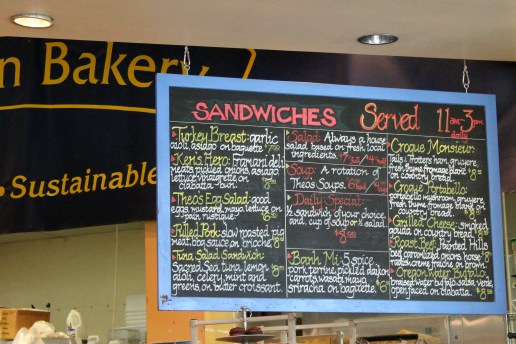 n Bakery
• Sustainable
SANDWICHES Served 11am-3pm daily
Turkey Breast: garlic
aioli, asiago on baguette $7.50
Ken's Hero: Framani deli
meats, pickled onions, asiago
lettuce, vinaigrette on
ciabatta-bun!
Theos Egg Salad: good
eggs, mustard, mayo, lettuce on
pain rustique
Pulled Pork: slow roasted pig
meat, bbq sauce on brioche
Tuna Salad Sandwich:
Sacred Sea tuna, lemon
aioli, celery, mint and
greens, on butter croissant.
Salad: Always a house
salad, based on fresh, local
ingredients.
Soup: A rotation of
Theos Soups.
Daily Special:
½ sandwich of your choice
and, cup of soup or ½ salad.
Banh Mi: 5 spice
pork terrine, pickled daikon
carrots, wasabi mayo,
sriracha, on baguette.
Croque Monsieur:
Tails & Trotters ham, gruyere,
fresh thyme, fromage blanc
on country bread.
Croque Portabello:
portabello mushroom, gruyere,
fresh thyme, fromage blanc, on
country bread.
Grilled Cheese: smoked
gouda, on country bread.
Roast Beef: Painted Hills
beef, caramelized onions, horse
radish, creme fraiche on brown.
Oregon Water Buffalo:
braised water buffalo, salsa verde,
open faced on ciabatta.